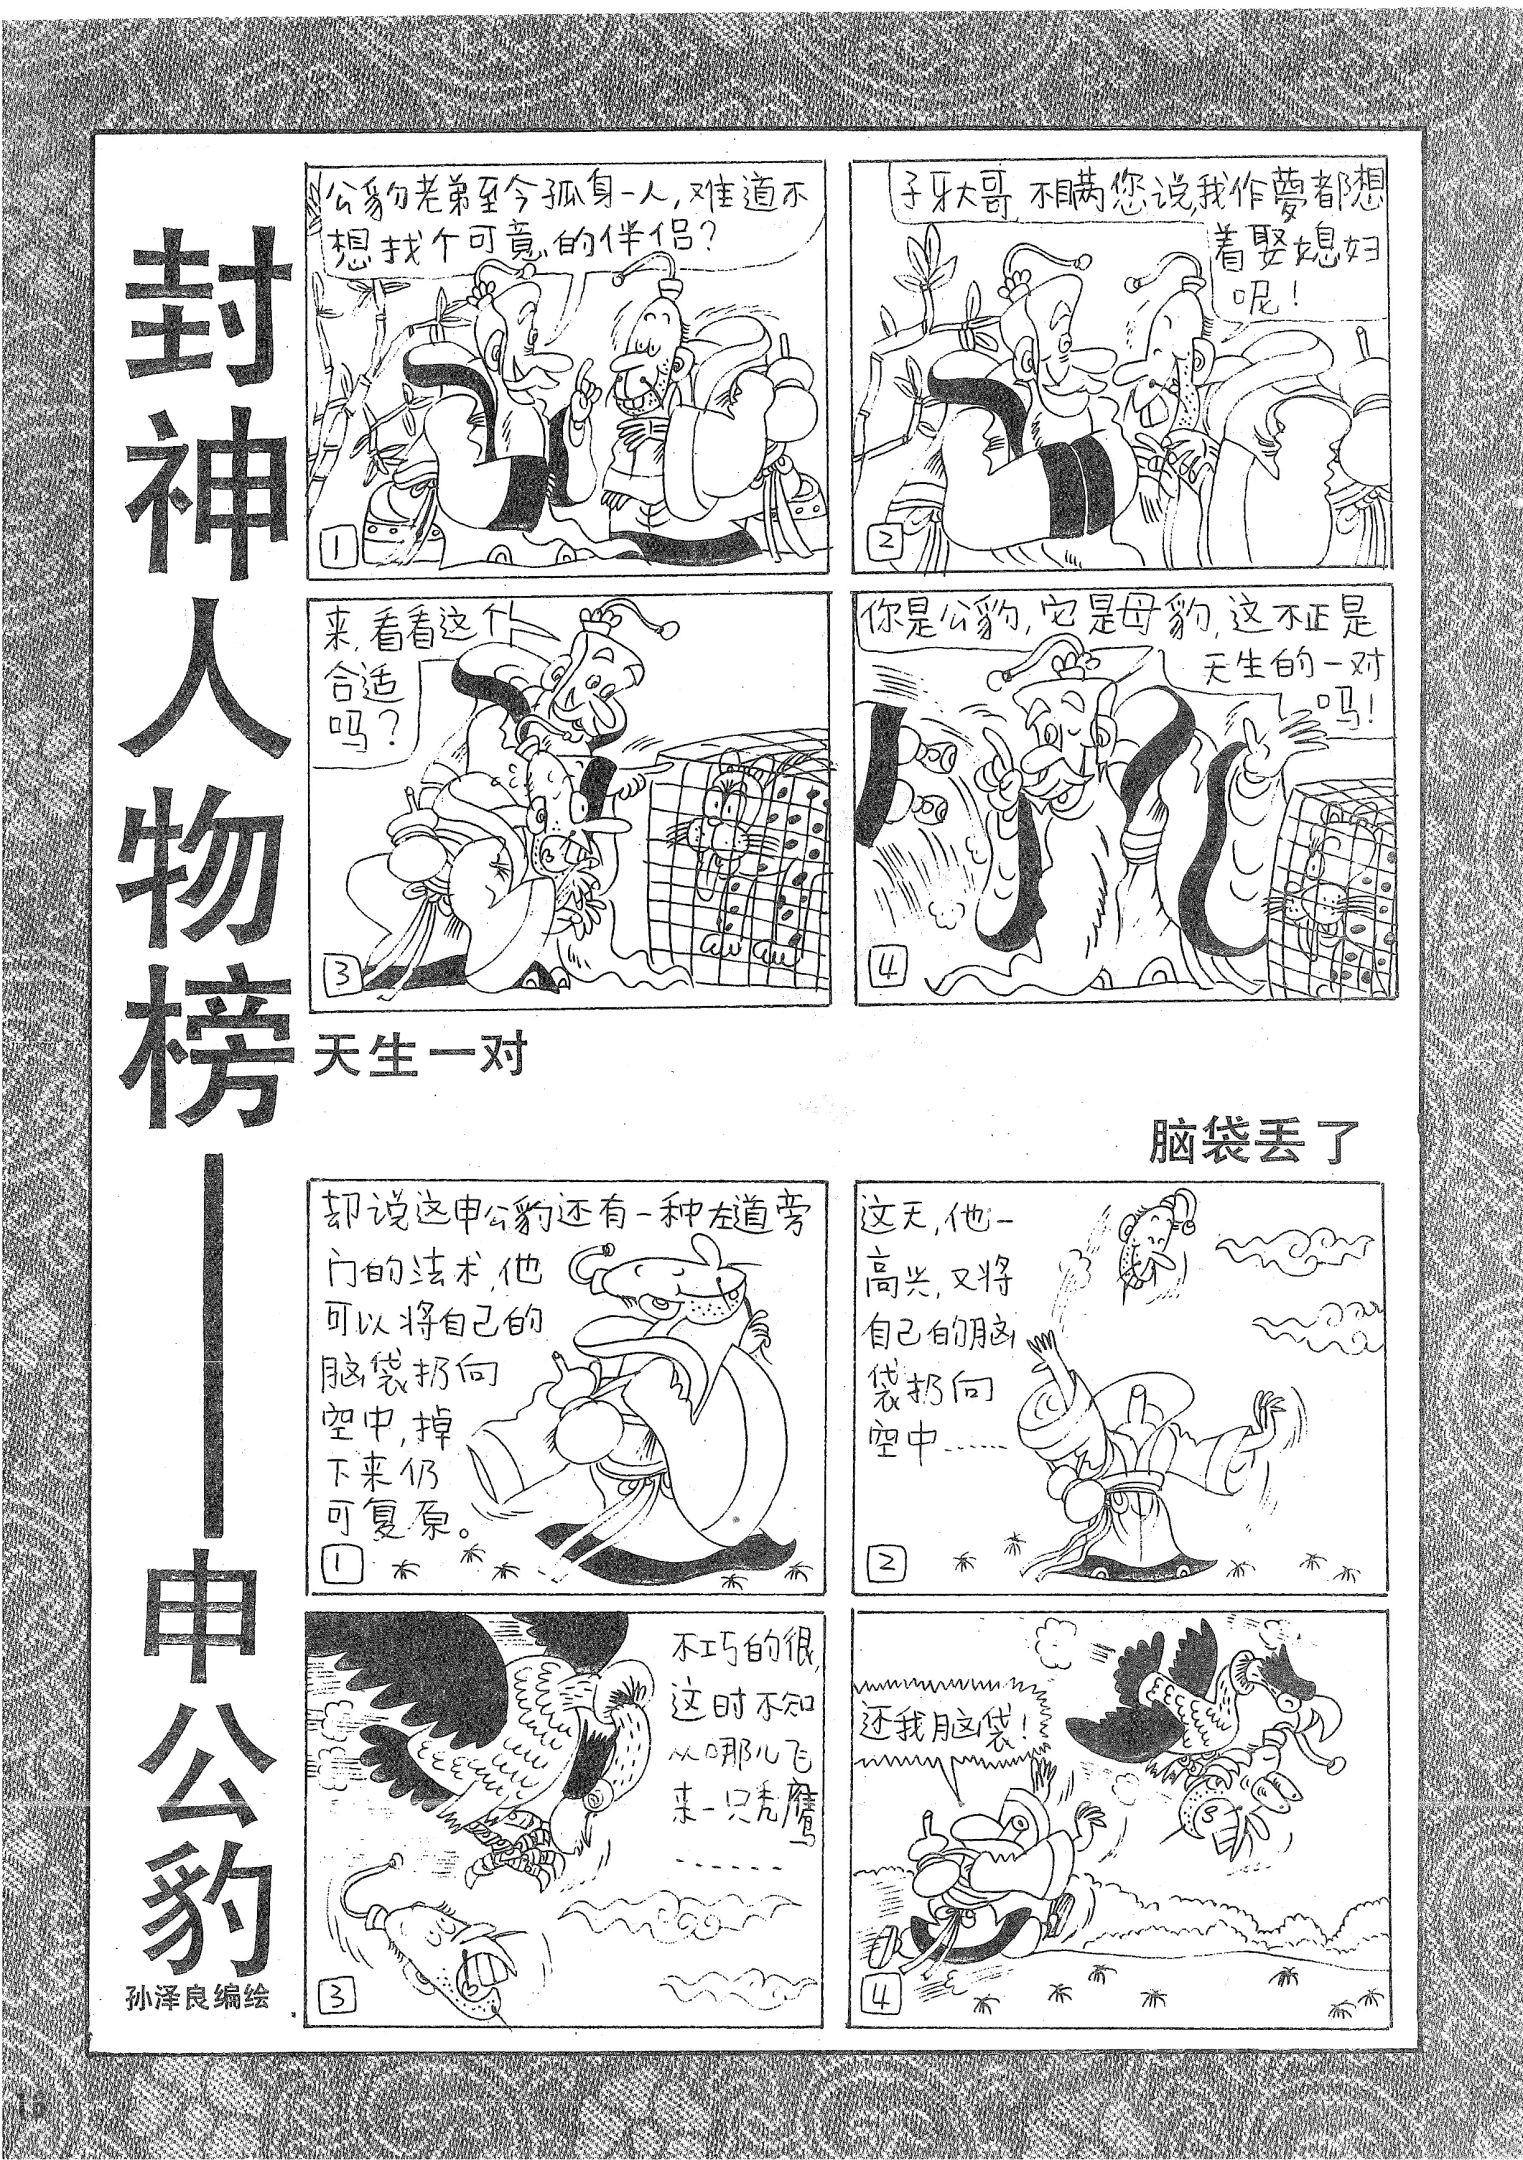 封神人物榜——申公豹
孙泽良编绘
公豹老弟至今孤身一人,难道不
想找个可意的伴侣?
1
子牙大哥,不瞒您说,我作夢都想
着娶媳妇
呢!
2
来,看看这个
合适
吗?
3
你是公豹,它是母豹,这不正是
天生的一对
吗!
4
天生一对
脑袋丢了
却说这申公豹还有一种左道旁
门的法术,他
可以将自己的
脑袋扔向
空中,掉
下来仍
可复原。
1
这天,他一
高兴,又将
自己的脑
袋扔向
空中……
2
不巧的很,
这时不知
从哪儿飞
来一只秃鹰
……
3
还我脑袋!
4
16